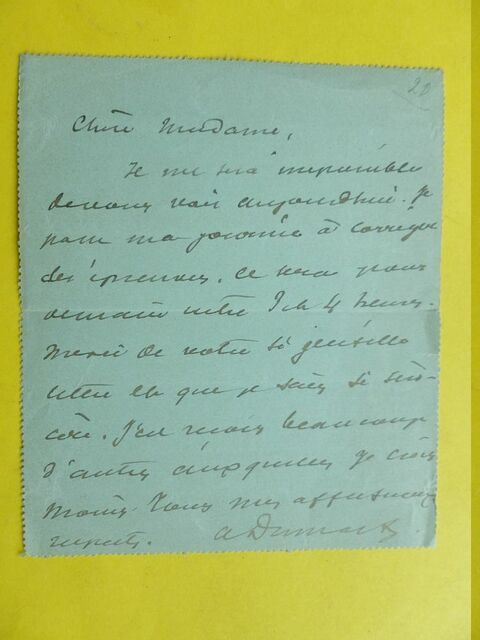 20
Chère Madame,
Il me sera impossible
de vous voir aujourd'hui. Je
passe ma journée à corriger
des épreuves. Ce sera pour
demain entre 3 et 4 heures.
Merci de votre si gentille
lettre et que je sais si sin-
cère. J'en reçois beaucoup
d'autres auxquelles je crois
moins. Tous mes affectueux
respects.